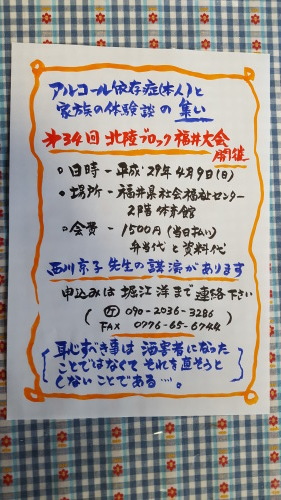 アルコール依存症(本人)と
家族の体験談の集い
第34回 北陸ブロック福井大会
開催
○日時-平成29年4月9日(日)
○場所-福井県社会福祉センター
2階 体育館
○会費-1500円(当日払)
弁当代と資料代
西川京子先生の講演があります
申込みは堀江洋まで連絡下さい
090-2036-3286
FAX 0776-65-6744
恥ずべき事は酒害者になった
ことではなくてそれを直そうと
しないことである…。